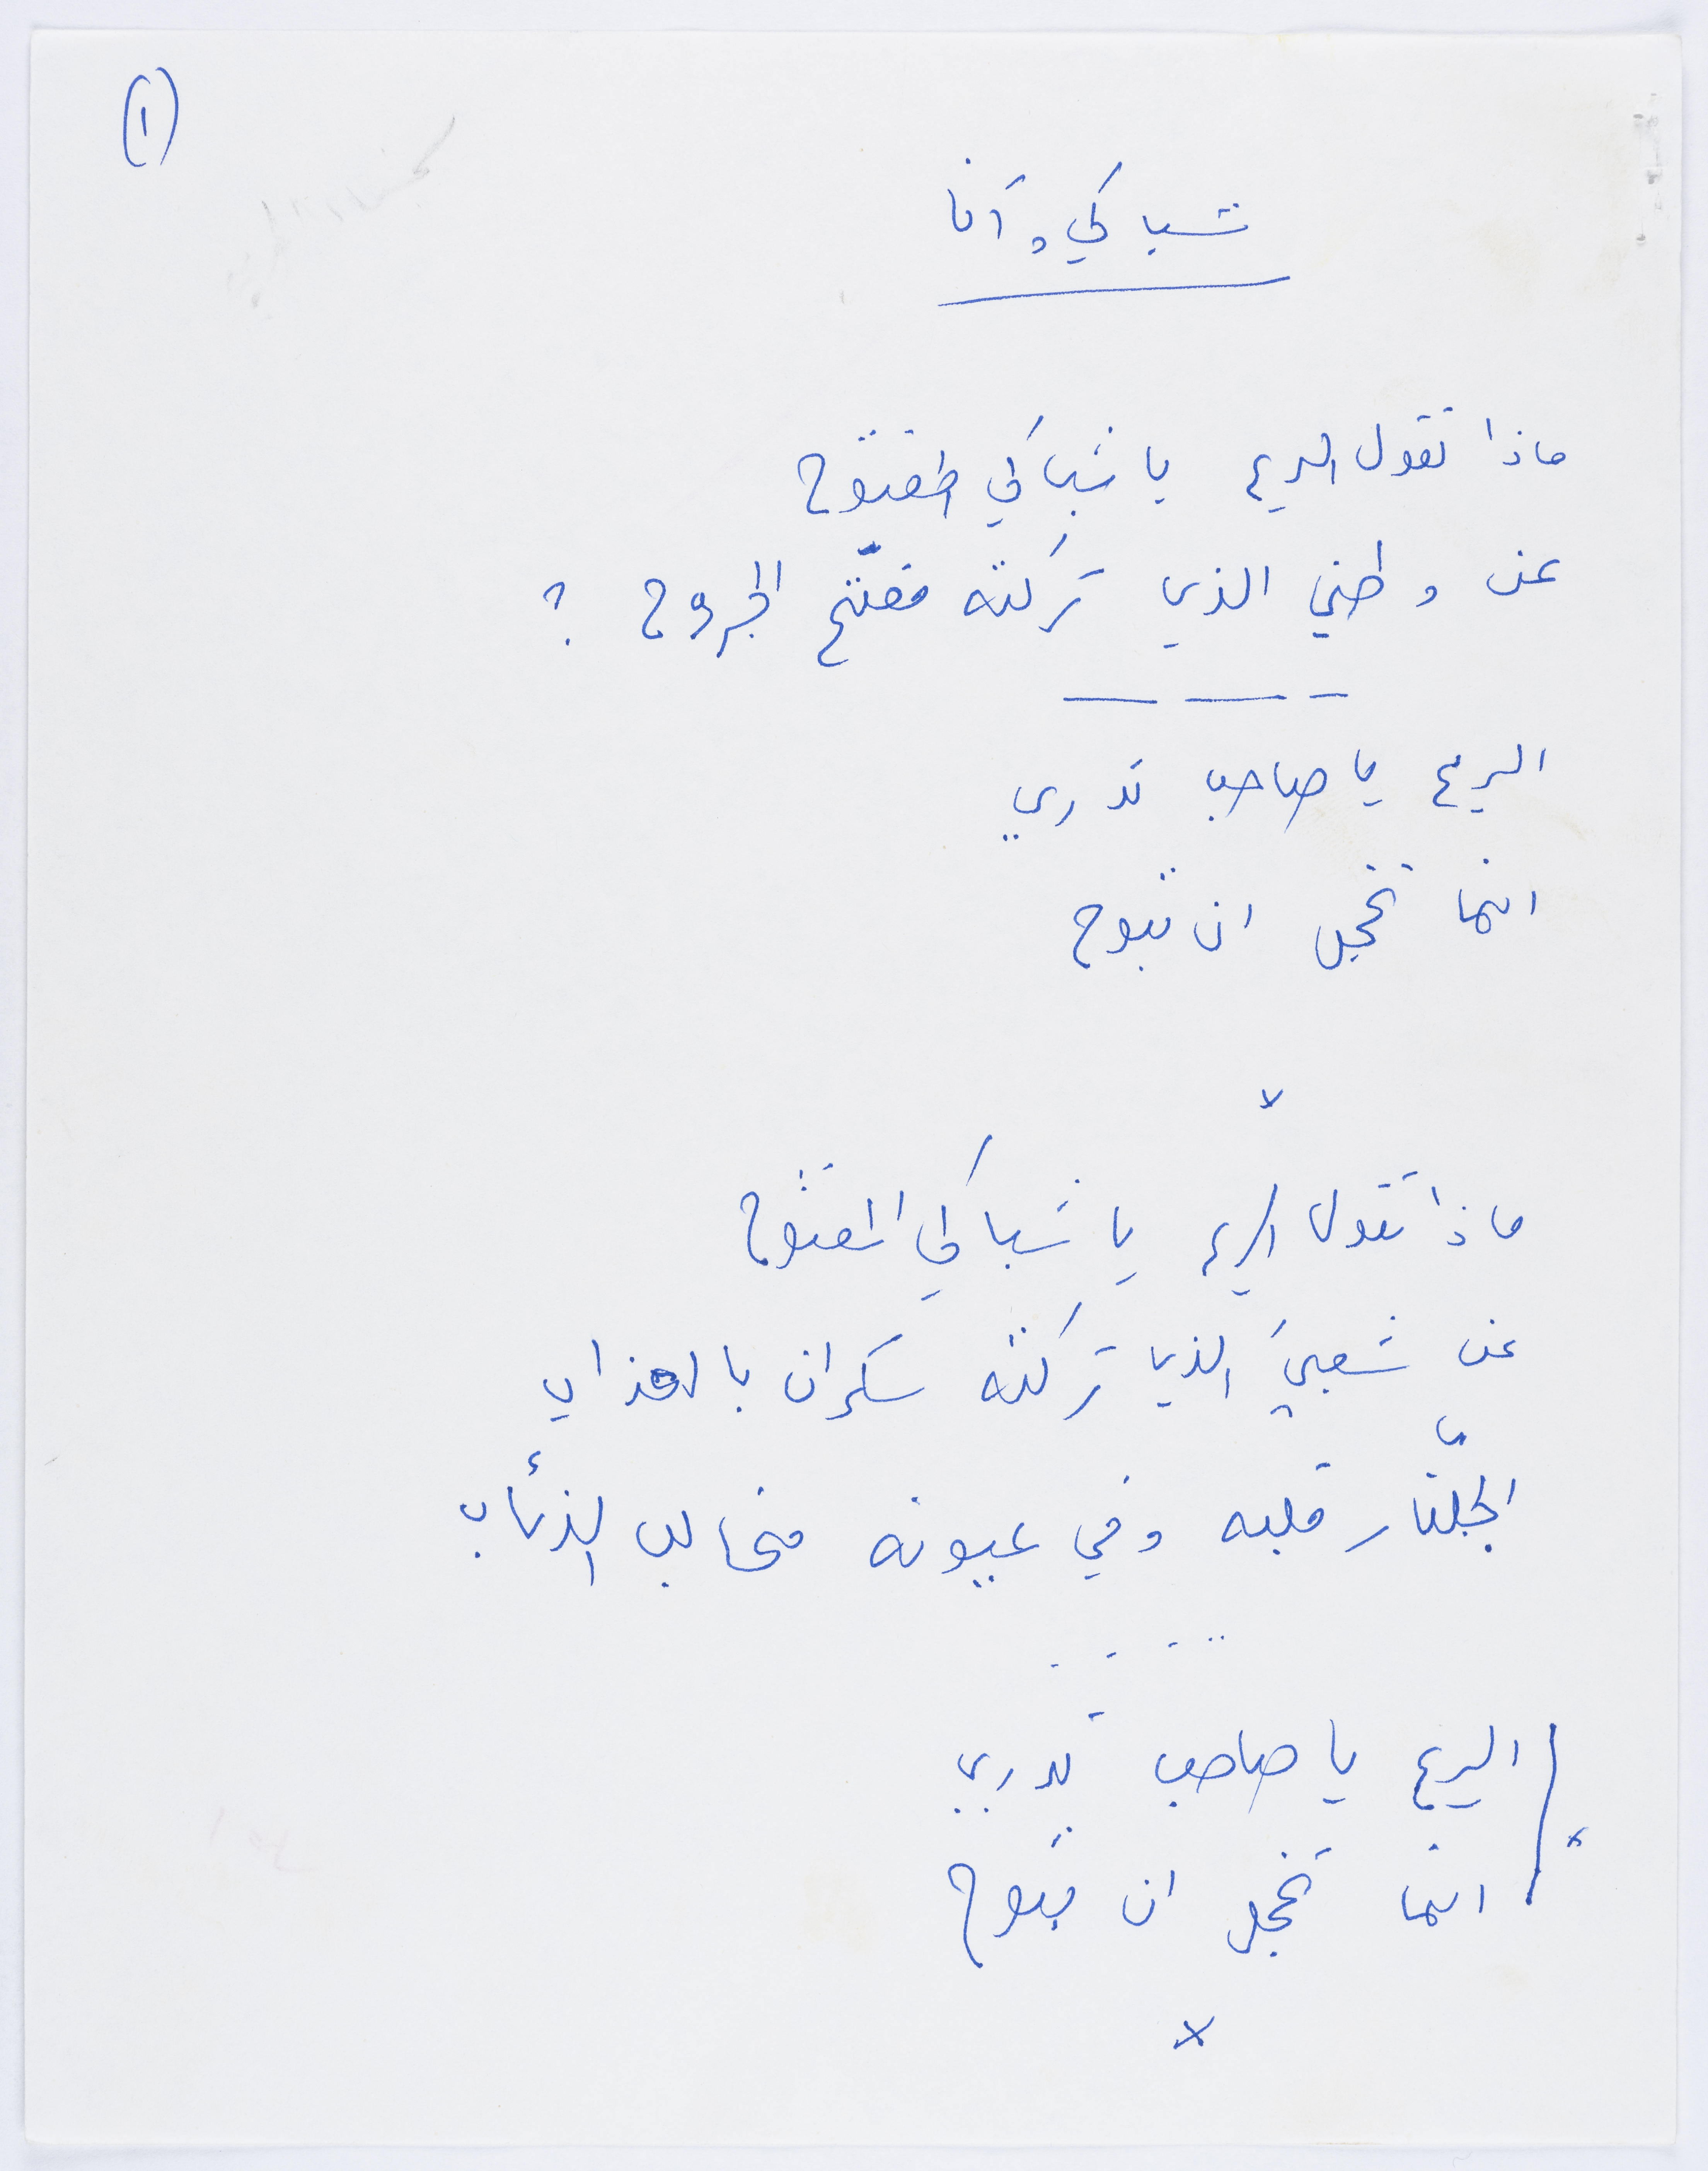 (١)
شباكي وأنا
ماذا تقول الريح يا شباكي المفتوح
عن وطني الذي تركته مفتّح الجروح ؟
الريح يا صاحب تدري
انما تخجل ان تبوح
x
ماذا تقول الريح يا شباكي المفتوح
عن شعبي الذي تركته سكران بالعذاب
الجلّنار قلبه وفي عيونه مخالب الذئاب
.....
الريح يا صاحب تدري
انما تخجل ان تبوح
x